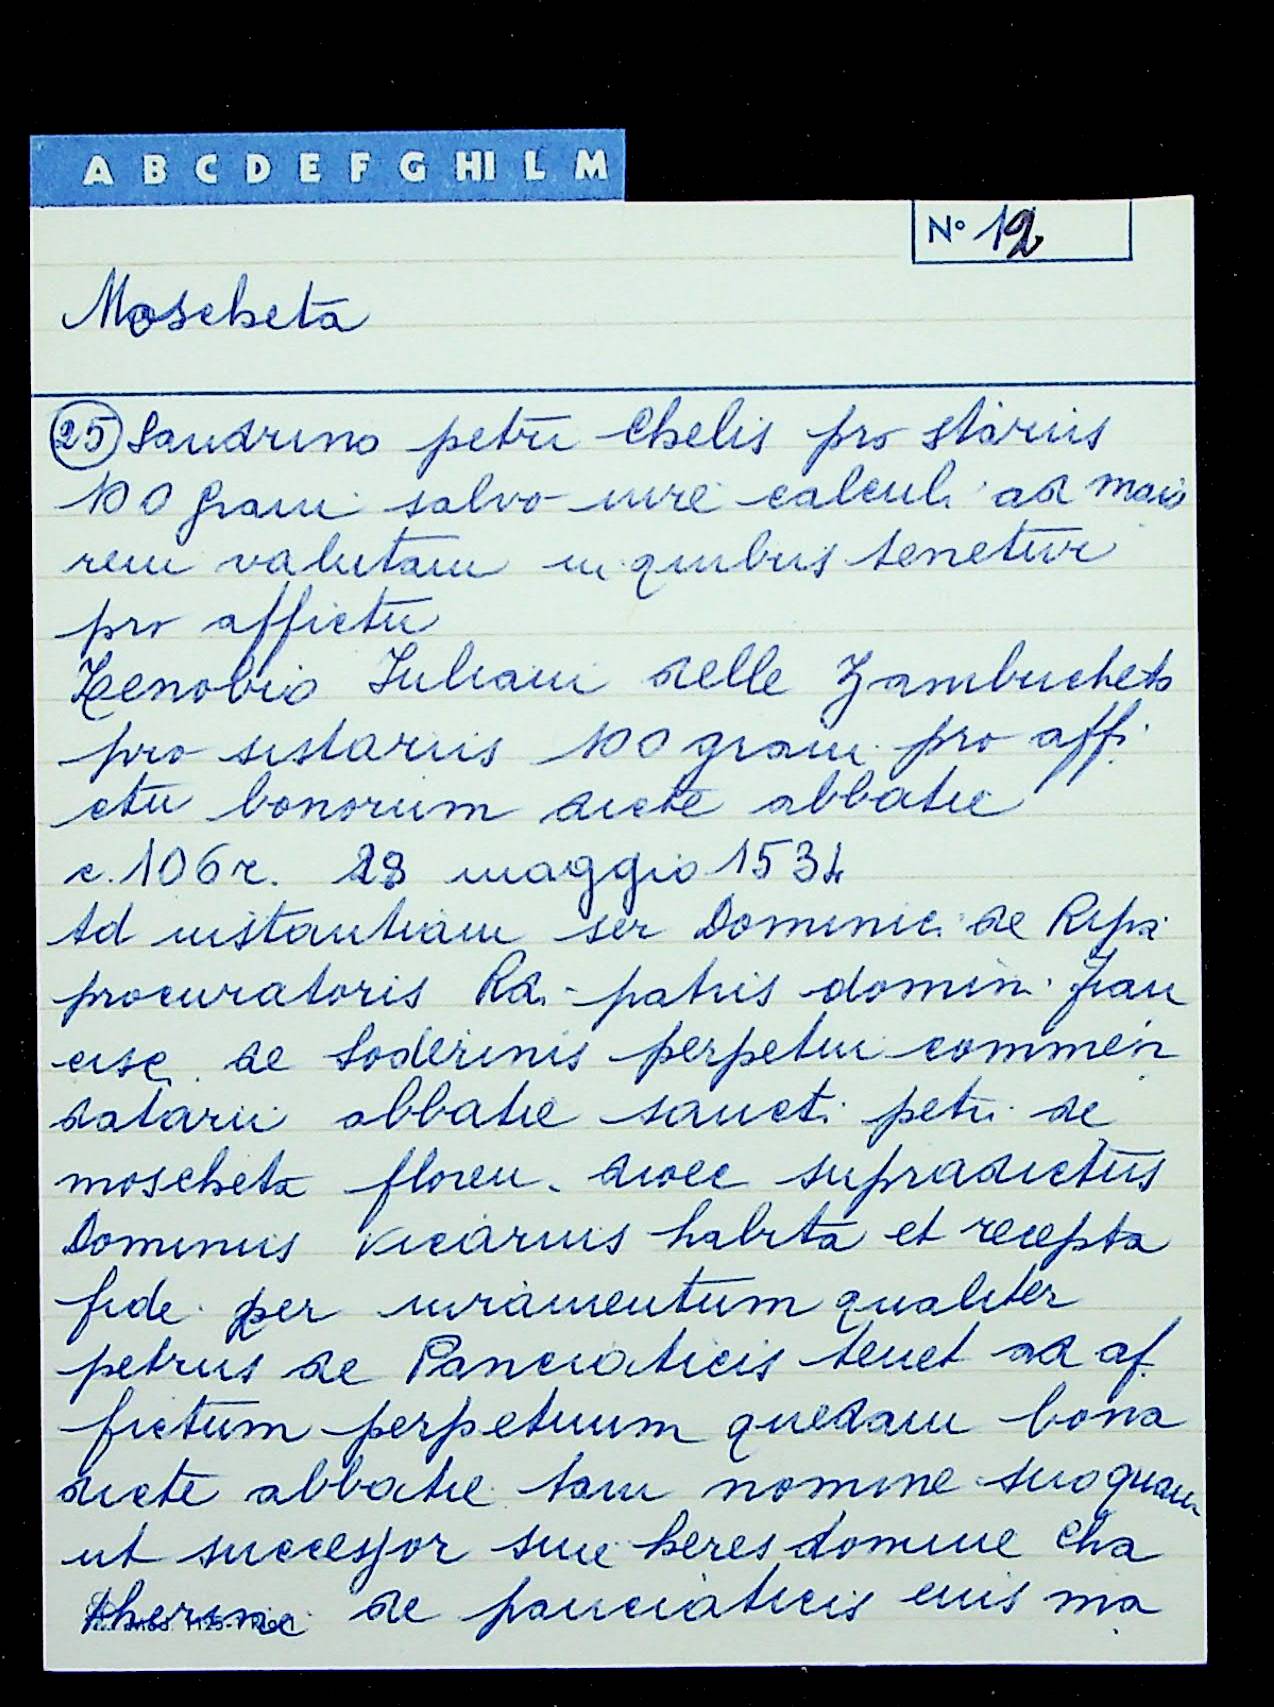 A B C D E F G HI L M
N° 12
Moscheta
25 Sandrino petri Chelis pro stariis
100 grani salvo iure calculi ad maio
rem valutam in quibus tenetur
pro affictu
Zenobio Iuliani delle Zambucheto
pro sistariis 100 grani pro affi
ctu bonorum dicte abbatie
c. 106 r. 28 maggio 1534
Ad instantiam ser Dominici de Ripa
procuratoris Rd. patris domini Fran
cisc. de Soderinis perpetui commen
datarii abbatie sancti petri de
moscheta floren. dioec supradictus
Dominus vicarius habita et recepta
fide per iuramentum qualiter
petrus de Panciaticis tenet ad af
fictum perpetuum quedam bona
dicte abbatie tam nomine suo quam
ut successor sive heres domine Cha
therine de panciaticis eius ma